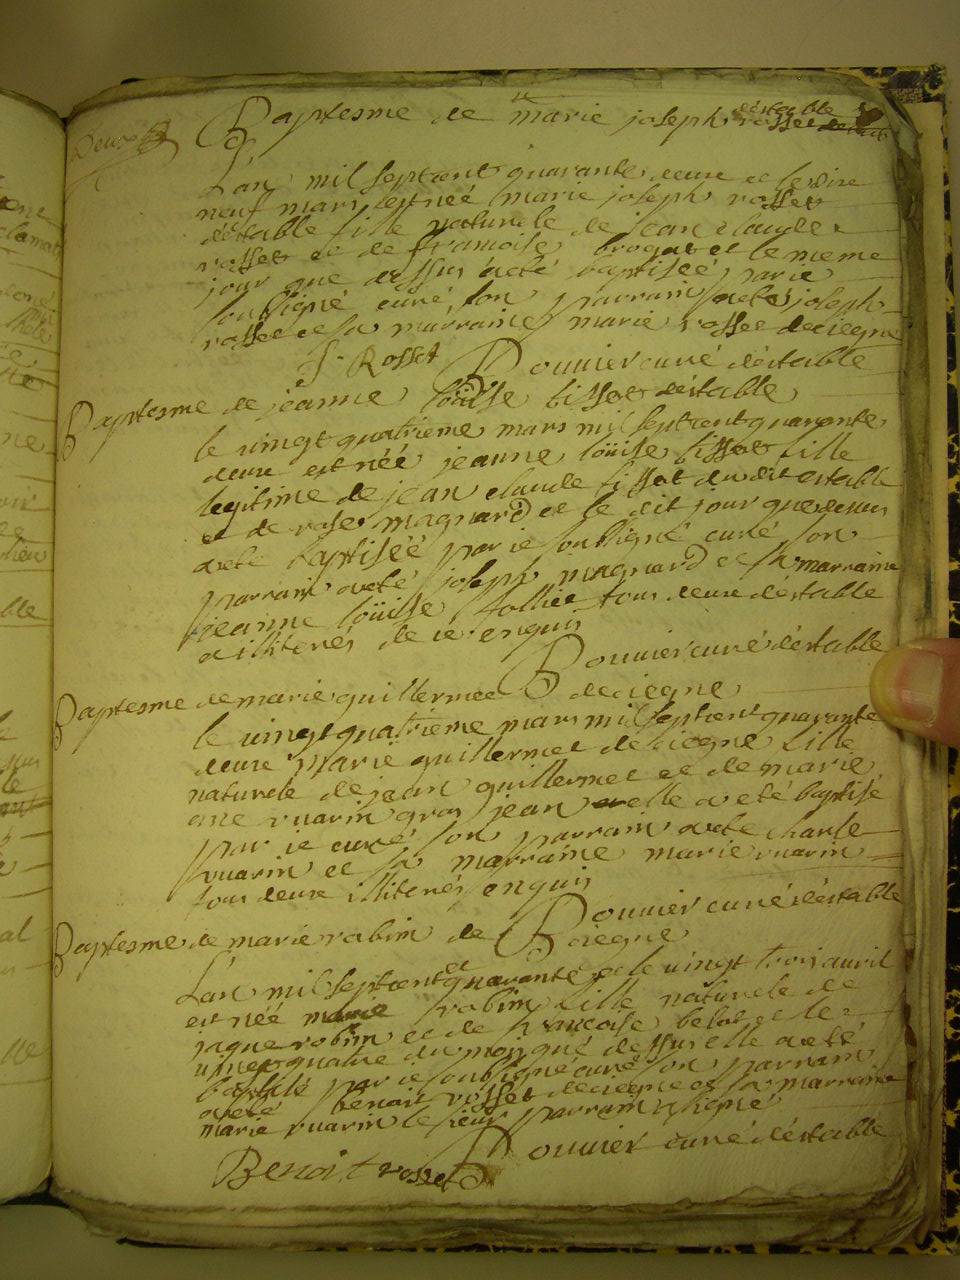 Deux
Baptesme de marie joseph rosset déstable
L'an mil septcent quarante deux et le dixe
neuf mars est née marie joseph rosset
déstable fille naturele de jean claude
rosset et de francoise brogat et le meme
jour que dessus a eté baptisée par ie
soubsigné curé son parrain a eté joseph
rosset et sa marraine marie rosset deciegne
J Rosset Bouvier curé déstable
Baptesme de jeanne loüise fissat déstable
le vingt quatrieme mars mil septcent quarante
deux est née jeanne loüise fissat fille
legitime de jean claude fissat dudit estable
et de rose magnard et le dit jour que dessus
a eté baptisée par ie soubsigné curé son
parrain a eté joseph magnard et sa marraine
jeanne loüise folliet tous deux déstable
illiterés de ce enquis
Bouvier curé déstable
Baptesme de marie guillermet deciegne
le vingt quatrieme mars mil septcent quarante
deux marie guillermet deciegne fille
naturele de jean guillermet et de marie
vuarin gros jean elle a eté baptisé
par ie curé son parrain a eté charle
vuarin et sa marraine marie vuarin
tous deux illiterés enquis
Bouvier curé déstable
Baptesme de marie rabin de ciegne
L'an mil septcent quarante et le vingt trois avril
est née marie rabin fille naturele de
jaque robin et de francoise belot et le
vingt quatre du mois que dessus elle a eté
baptisé par ie soubsigné curé son parrain
a eté benoit rosset deciegne et sa marraine
marie vuarin le sieur parrain signé
Bouvier curé déstable
Benoit rosset